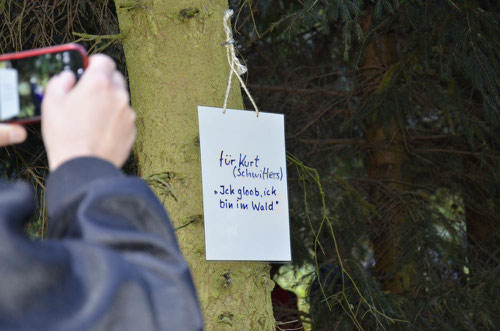 für Kurt
(Schwitters)
„Ick gloob, ick
bin im Wald"